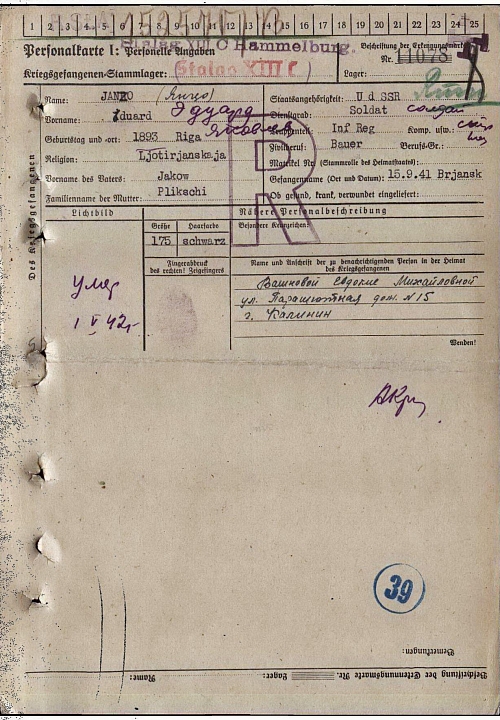 1 2 3 4 5 6 7 8 9 10 11 12 13 14 15 16 17 18 19 20 21 22 23 24 25
Personalkarte I: Personelle Angaben
Hammelburg.
Beschriftung der Erkennungsmarke
Nr. 11078
Kriegsgefangenen-Stammlager: Stalag XIII C
Lager:
Des Kriegsgefangenen
Name: JANZO
Staatsangehörigkeit: U d SSR
Vorname: Eduard Эдуард
Dienstgrad: Soldat солдат
Geburtstag und -ort: 1893 Riga Яковлев
Truppenteil: Inf Reg Komp. usw.:
Religion: Ljotirjanskaja
Zivilberuf: Bauer Berufs-Gr.:
Matrikel Nr. (Stammrolle des Heimatstaates):
Vorname des Vaters: Jakow
Gefangennahme (Ort und Datum): 15.9.41 Brjansk
Familienname der Mutter: Plikschi
Ob gesund, krank, verwundet eingeliefert:
R
Lichtbild
Nähere Personalbeschreibung
Größe Haarfarbe Besondere Kennzeichen:
175 schwarz
Fingerabdruck
des rechten! Zeigefingers
Name und Anschrift der zu benachrichtigenden Person in der Heimat
des Kriegsgefangenen
Вашновой Евдокие Михайловной
ул. Парашютная дом. N 15
г. Калинин
умер
1 V 42г.
Wenden!
39
Bemerkungen:
Beschriftung der Erkennungsmarke Nr.
Lager:
Name: